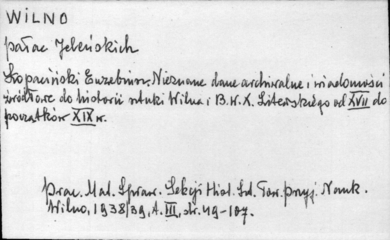 WILNO
pałac Jeleńskich
Łopaciński Euzebiusz. Nieznane dane archiwalne i wiadomości
źródłowe do historii sztuki Wilna i B.W.X. Litewskiego od XVII do
początków XIX w.
Prac. Mat. Spraw. Sekcji Hist. Szt. Tow. Przyj. Nauk.
Wilno, 1938/39, t. III, str. 49-107.